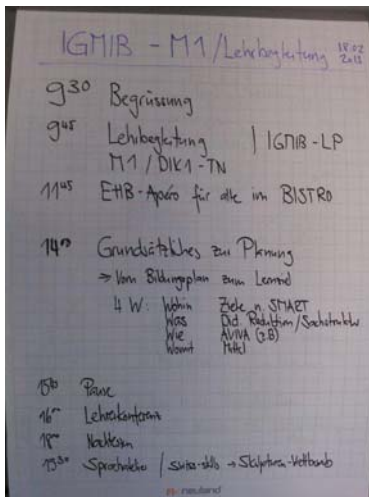 IGMIB - M1/Lehrbegleitung 18.02
9³⁰ Begrüssung
9⁴⁵ Lehrbegleitung | IGMIB-LP
M1/DIK1-TN
11⁴⁵ EHB-Apéro für alle im BISTRO
14⁰⁰ Grundsätzliches zur Planung
→ Vom Bildungsplan zum Lernziel
4 W: Wohin Ziele n. SMART
Was Did. Reduktion/Sachstruktur
Wie AVIVA (z.B)
Womit Mittel
Pause
16⁰⁰ Lehrerkonferenz
18⁰⁰ Nachtessen
19³⁰ / Swiss-skills → Skulpturen-Wettbewerb
neuland